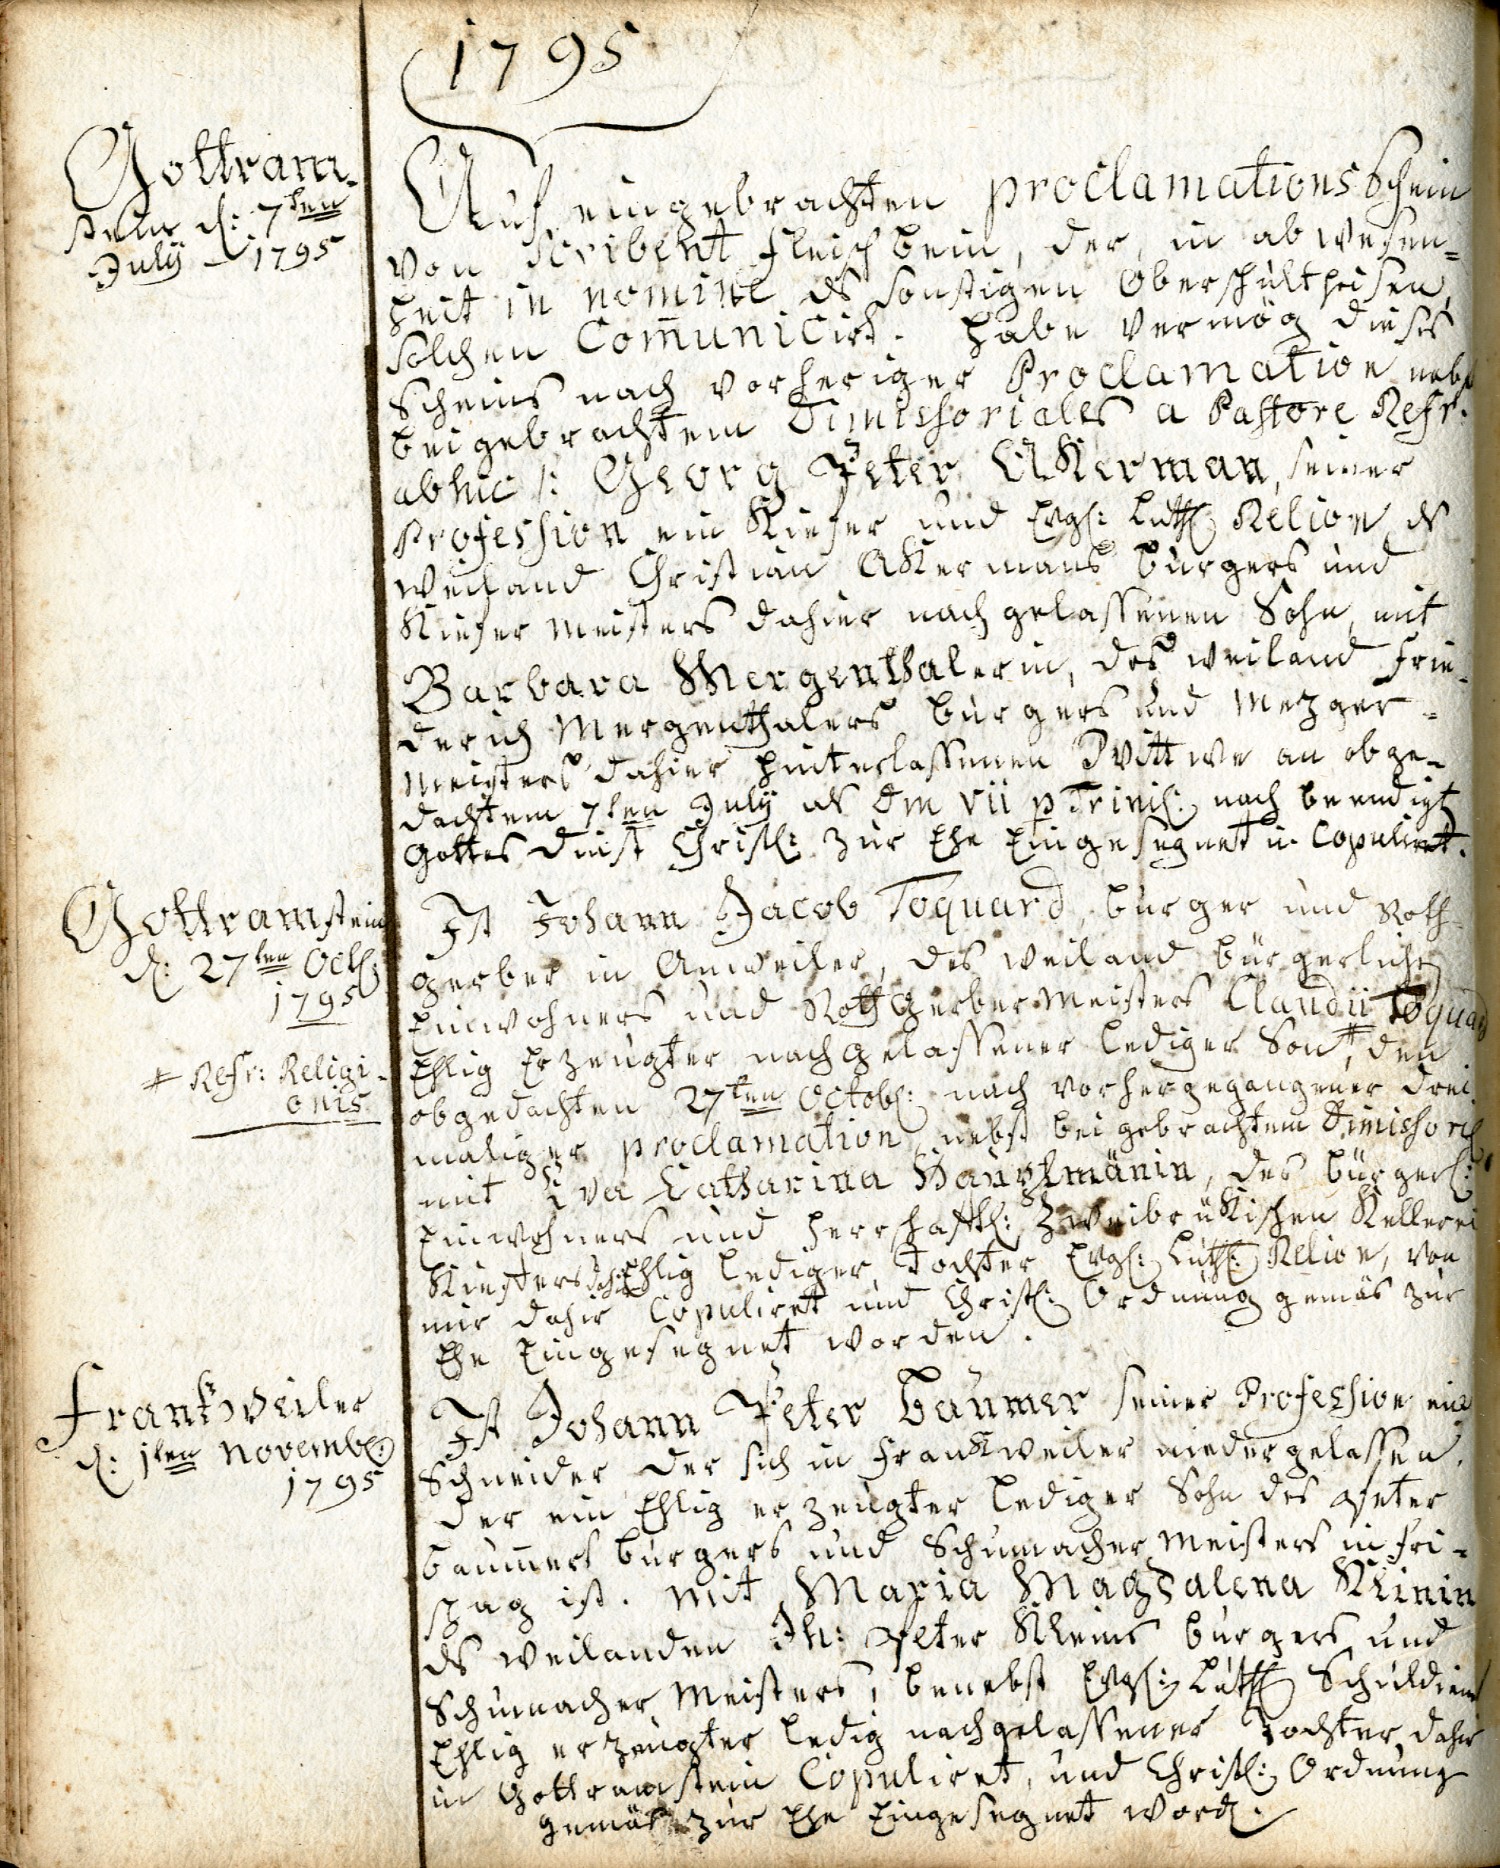 1795
Gottram-
stein d: 7ten
July 1795
Auf eingebrachten proclamations Schein
von Scribent Fleischbein, der, in abwesen=
heit in nomine ds sonstigen Oberschultheisen,
solchen Comuniciret. habe vermög dieses
Scheins nach vorheriger Proclamation nebst
beigebrachtem Dimissoriales a Pastore Refr:
ab hic /: Georg Peter Akerman, seiner
Profession ein Kiefer und Evgl: Luth: Relion ds
weiland Christian Akermans burgers und
Kiefer meisters dahier nachgelassenen Sohn, mit
Barbara Mergenthalerin, des weiland Frie-
derich Mergenthalers burgers und Metzger=
meisters dahier hinterlassenen Wittwe an obge-
dachtem 7ten July als Dm VII p Trinit: nach beendigt
Gottes dinst Christl: zur Ehe Eingesegnet u. Copuliret.
Gottramstein
d: 27ten Octb:
1795
# Refr: Religi-
onis
Ist Johann Jacob Toquard, burger und Roth-
gerber in Anweiler, des weiland bürgerliche
Einwohners und Roth Gerber Meisters Claudii Toquard
Ehlig Erzeugter nachgelassener lediger Son #, den
obgedachten 27ten Octob: nach vorhergegangener drei
maliger proclamation, nebst beigebrachtem Dimissoril
mit Eva Catharina Hauptmänin, des bürgerl:
Einwohners und herrschaftl: Zweibrükischen Kellerei
Kiefers Ehlig lediger Tochter Evgl: Luth: Relion, von
mir dahir Copuliret und Christl: Ordnung gemäs zur
Ehe Eingesegnet worden.
Frankweiler
d: 1ten Novemb:
1795
Ist Johann Peter Baumer seiner Profession ein
Schneider der sich in Frankweiler niedergelassen,
der ein Ehlig erzeugter lediger Sohn des Peter
baumers burgers und Schumacher meisters in Fri=
spag ist. mit Maria Magdalena Kleinin
ds weilanden Joh: Peter Kleins burgers und
Schumacher Meisters, benebst Evgl: Luth: Schuldiener
Ehlig erzeugter ledig nachgelassener Tochter dahir
in Gottramstein Copuliret, und Christl: Ordnung
gemäs zur Ehe Eingesegnet word.